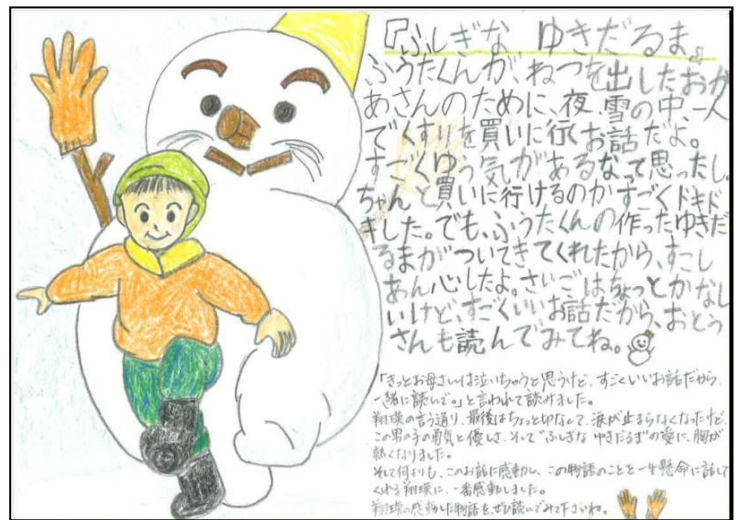 『ふしぎな ゆきだるま』
ふうたくんが、ねつを出したおか
あさんのために、夜、雪の中、一人
でくすりを買いに行くお話だよ。
すごくゆう気があるなって思ったし、
ちゃんと買いに行けるのかすごくドキド
キした。でも、ふうたくんの作ったゆきだ
るまがついてきてくれたから、すこし
あん心したよ。さいごはちょっとかなし
いけど、すごくいいお話だから、おとう
さんも読んでみてね。
「きっとお母さんは泣いちゃうと思うけど、すごくいいお話だから、
一緒に読んで。」と言われて読みました。
翔瑛の言う通り、最後はちょっと切なくて、涙が止まらなくなったけど、
この男の子の勇気と優しさ、そして“ふしぎな ゆきだるま”の愛に、胸が
熱くなりました。
そして何よりも、このお話に感動し、この物語のことを一生懸命に話して
くれる翔瑛に、一番感動しました。
翔瑛の感動した物語を、ぜひ読んでみて下さいね。